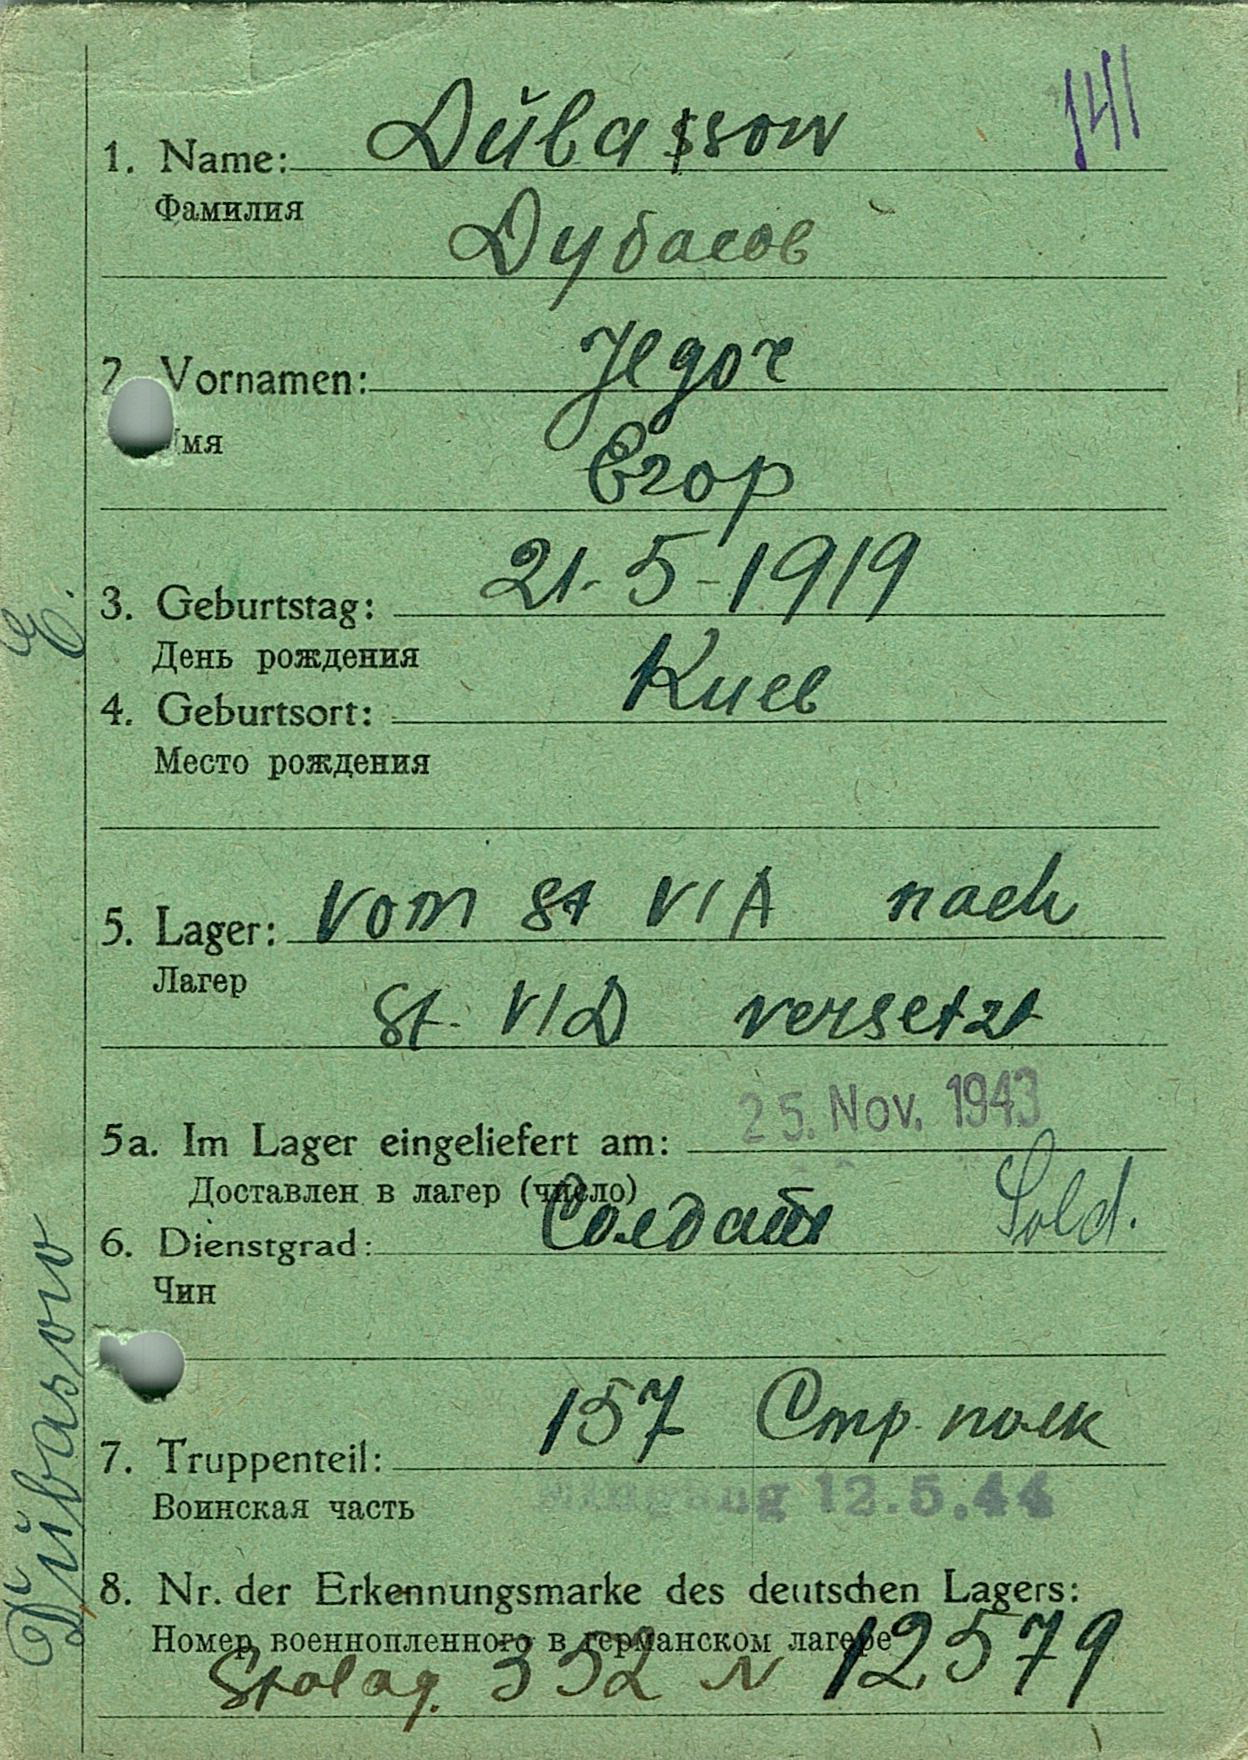 141
1. Name: Dŭbassow
Фамилия
Дубасов
2. Vornamen: Jegor
Имя
Егор
3. Geburtstag: 21-5-1919
День рождения
4. Geburtsort: Киев
Место рождения
5. Lager: Vom St VI A nach
Лагер
St. VI D versetzt
5a. Im Lager eingeliefert am: 25. Nov. 1943
Доставлен в лагер (число)
6. Dienstgrad: Солдат Sold.
Чин
7. Truppenteil: 157 Стр. полк
Воинская часть
12.5.44
8. Nr. der Erkennungsmarke des deutschen Lagers:
Номер военнопленного в германском лагере
Stalag. 352 N 12579
Dŭbasow E.